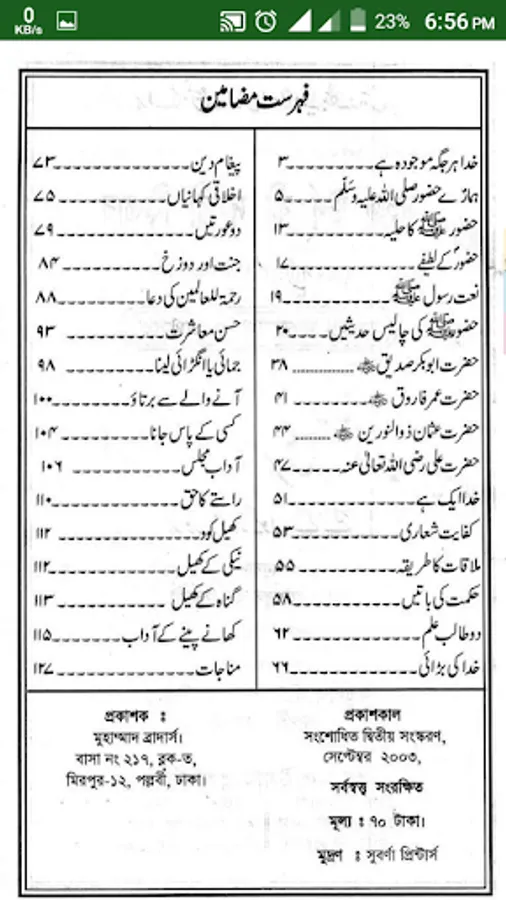 0
KB/s
23% 6:56 PM
فہرست مضامین
خدا ہر جگہ موجود ہے ۳
ہمارے حضور صلی اللہ علیہ وسلم ۵
حضور ﷺ کا حلیہ ۱۳
حضورؐ کے لطیفے ۱۷
نعت رسول ﷺ ۱۹
حضور ﷺ کی چالیس حدیثیں ۲۰
حضرت ابوبکر صدیق ؓ ۳۸
حضرت عمر فاروق ؓ ۴۱
حضرت عثمان ذوالنورین ؓ ۴۴
حضرت علی رضی اللہ تعالیٰ عنہ ۴۷
خدا ایک ہے ۵۱
کفایت شعاری ۵۳
ملاقات کا طریقہ ۵۵
حکمت کی باتیں ۵۸
دو طالب علم ۶۲
خدا کی بڑائی ۶۶
پیغام دین ۷۳
اخلاقی کہانیاں ۷۵
دو عورتیں ۷۹
جنت اور دوزخ ۸۴
رحمۃ للعالمین کی دعا ۸۸
حسن معاشرت ۹۳
جمائی یا انگڑائی لینا ۹۸
آنے والے سے برتاؤ ۱۰۰
کسی کے پاس جانا ۱۰۴
آداب مجلس ۱۰۶
راستے کا حق ۱۱۰
کھیل کود ۱۱۲
نیکی کے کھیل ۱۱۲
گناہ کے کھیل ۱۱۳
کھانے پینے کے آداب ۱۱۵
مناجات ۱۲۷
প্রকাশক ঃ
মুহাম্মাদ ব্রাদার্স।
বাসা নং ২১৭, ব্লক-ত,
মিরপুর-১২, পল্লবী, ঢাকা।
প্রকাশকাল
সংশোধিত দ্বিতীয় সংস্করণ,
সেপ্টেম্বর ২০০৩,
সর্বস্বত্ত্ব সংরক্ষিত
মূল্য ঃ ৭০ টাকা।
মুদ্রণ ঃ সুবর্ণা প্রিন্টার্স